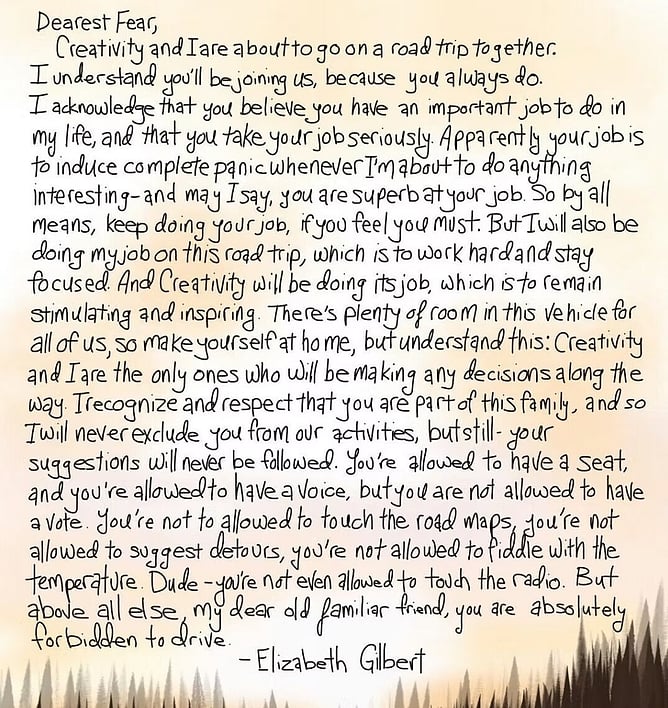 Dearest Fear,
Creativity and I are about to go on a road trip together.
I understand you'll be joining us, because you always do.
I acknowledge that you believe you have an important job to do in
my life, and that you take your job seriously. Apparently your job is
to induce complete panic whenever I'm about to do anything
interesting - and may I say, you are superb at your job. So by all
means, keep doing your job, if you feel you must. But I will also be
doing my job on this road trip, which is to work hard and stay
focused. And Creativity will be doing its job, which is to remain
stimulating and inspiring. There's plenty of room in this vehicle for
all of us, so make yourself at home, but understand this: Creativity
and I are the only ones who will be making any decisions along the
way. I recognize and respect that you are part of this family, and so
I will never exclude you from our activities, but still - your
suggestions will never be followed. You're allowed to have a seat,
and you're allowed to have a voice, but you are not allowed to have
a vote. You're not to allowed to touch the road maps, you're not
allowed to suggest detours, you're not allowed to fiddle with the
temperature. Dude - you're not even allowed to touch the radio. But
above all else, my dear old familiar friend, you are absolutely
forbidden to drive.
- Elizabeth Gilbert